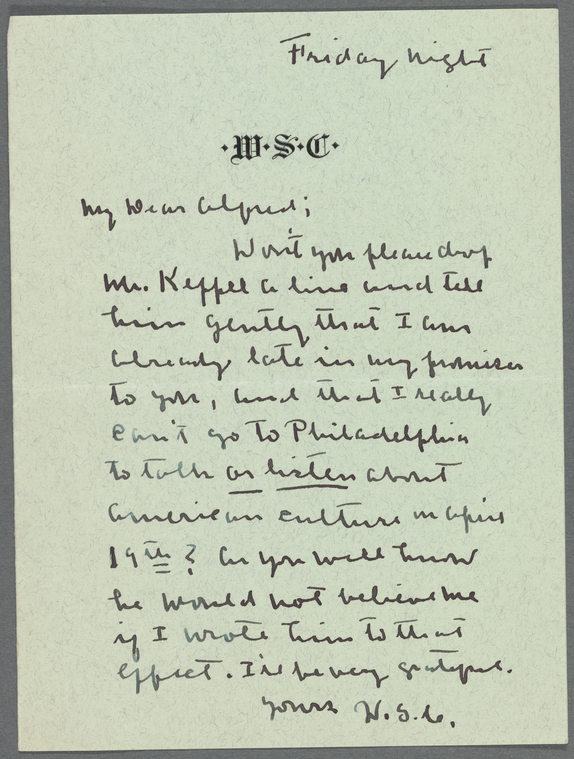 Friday night
·W·S·C·
My Dear Alfred;
Won't you please drop
Mr. Keppel a line and tell
him gently that I am
already late in my promises
to you, and that I really
can't go to Philadelphia
to talk or listen about
American culture on April
19th? As you well know
he would not believe me
if I wrote him to that
effect. I'll be very grateful.
Yours W.S.C.